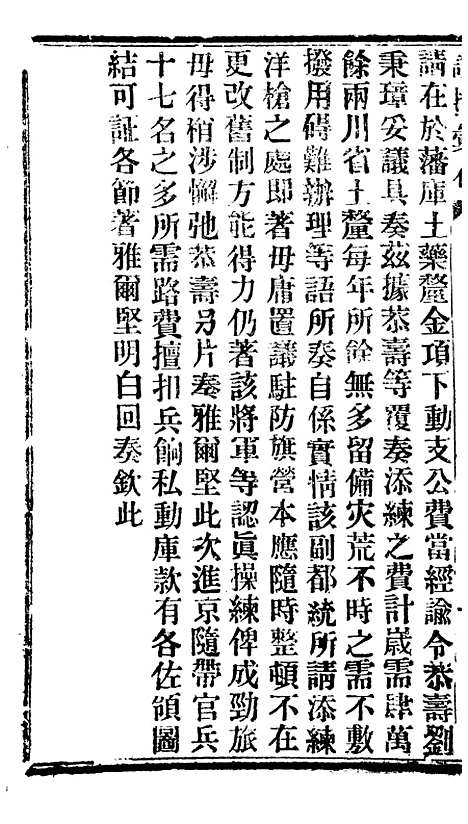 請在於藩庫土藥釐金項下動支公費當經諭令恭壽劉
秉璋妥議具奏茲據恭壽等覆奏添練之費計歲需肆萬
餘兩川省土釐每年所餘無多留備灾荒不時之需不敷
撥用碍難辦理等語所奏自係實情該副都統所請添練
洋槍之處即著毋庸置議駐防旗營本應隨時整頓不在
更改舊制方能得力仍著該將軍等認眞操練俾成勁旅
毋得稍涉懈弛恭壽另片奏雅爾堅此次進京隨帶官兵
十七名之多所需路費擅扣兵餉私動庫款有各佐領圖
結可証各節著雅爾堅明白回奏欽此